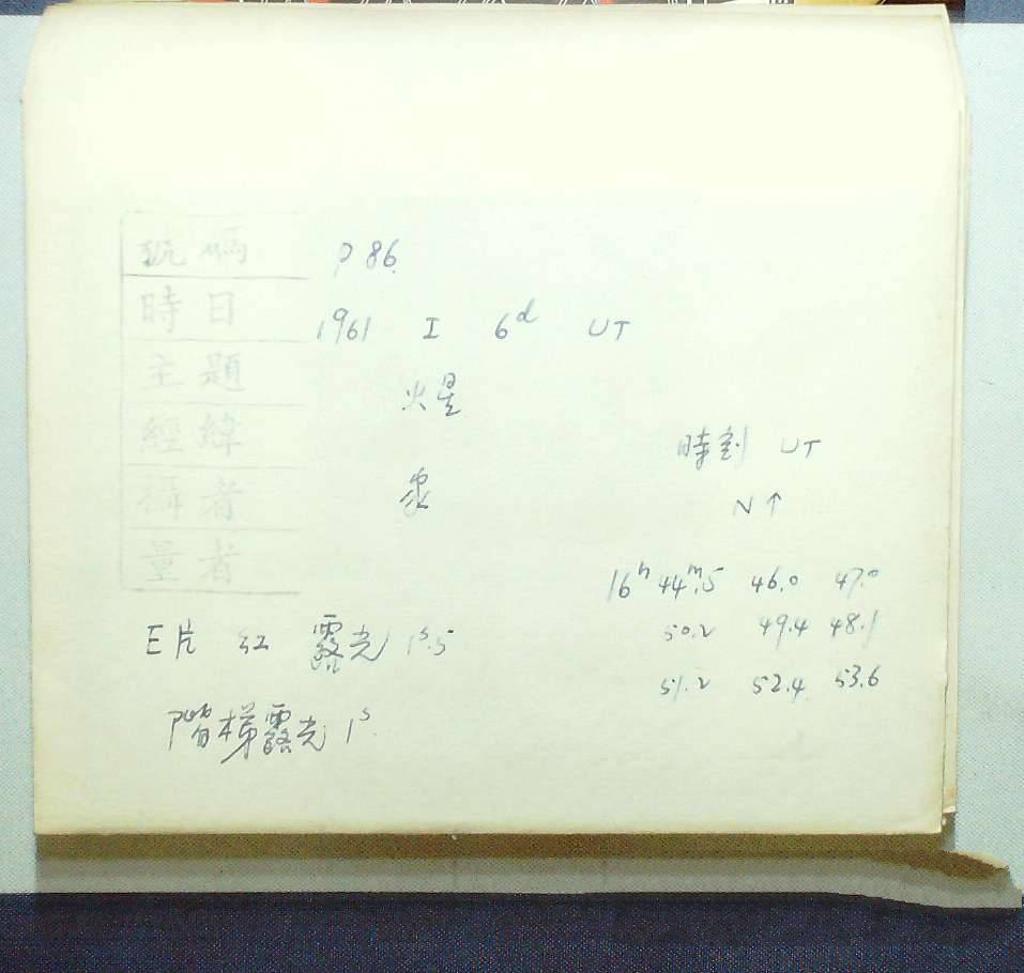 號碼 P 86
時日 1961 I 6ᵈ UT
主題 火星
經緯
攝者
量者
時刻 UT
N ↑
16ʰ 44ᵐ.5 46.0 47.0
50.2 49.4 48.1
51.2 52.4 53.6
E片 紅 露光 1ˢ.5
階梯露光 1ˢ